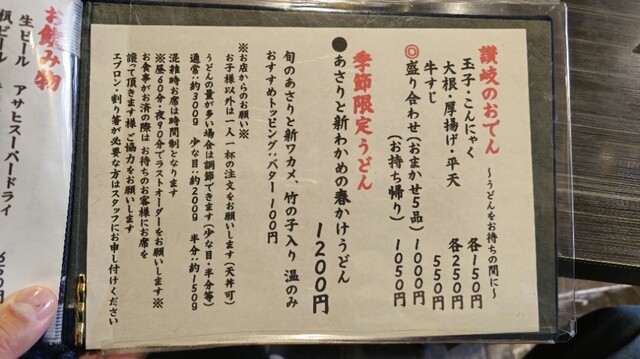 讃岐のおでん ～うどんをお待ちの間に～
玉子・こんにゃく 各150円
大根・厚揚げ・平天 各250円
牛すじ 550円
◎盛り合わせ(おまかせ5品) 1000円
(お持ち帰り) 1050円
季節限定うどん
●あさりと新わかめの春かけうどん
1200円
旬のあさりと新ワカメ、竹の子入り 温のみ
おすすめトッピング:バター 100円
※お店からのお願い※
お子様以外は一人一杯の注文をお願いします(天丼可)
うどんの量が多い場合は調節できます(少な目・半分等)
通常:約300g 少な目:約200g 半分:約150g
混雑時お席は時間制となります
※昼60分・夜90分でラストオーダーをお願いします※
お食事がお済の際は お待ちのお客様にお席を
譲って頂きます様ご協力をお願いします
エプロン・割り箸が必要な方はスタッフにお申し付けください
お飲み物
生ビール アサヒスーパードライ
650円